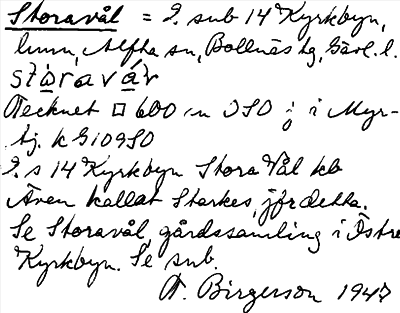 Storavål = L. sub 14 Kyrkbyn,
Alfta sn, Bollnäs tg, Gävl. l.
stòravár
Tecknet □ 600 m OSO i Myr-
tj. k G109SO
L. s 14 Kyrkbyn Stora Vål kb
Även kallat Starkes, jfr detta.
Se Storavål, gårdssamling i Östra
Kyrkbyn. Se sub.
Birgerson 1947